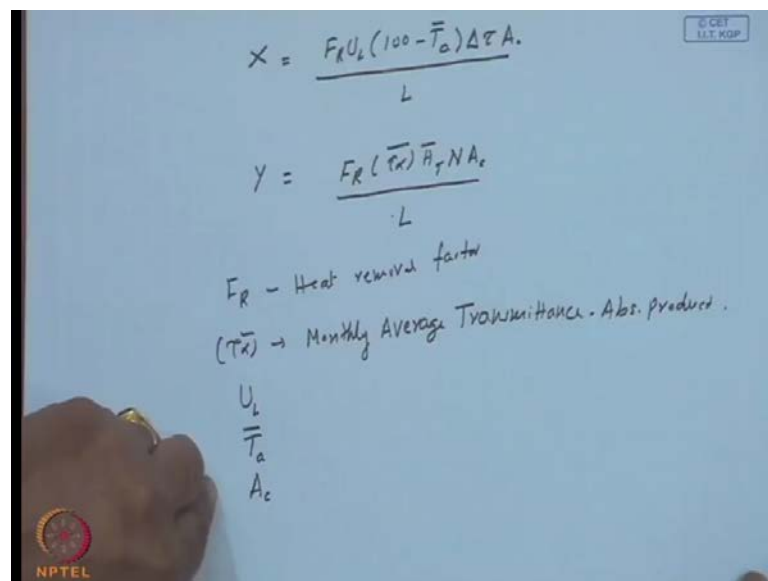 © CET
I.I.T. KGP
X = F_R U_L (100 - T̿_a) Δτ A.
L
Y = F_R (τα)̅ H̅_T N A_c
L
F_R - Heat removal factor
(τα)̅ → Monthly Average Transmittance. Abs. product.
U_L
T̿_a
A_c
NPTEL